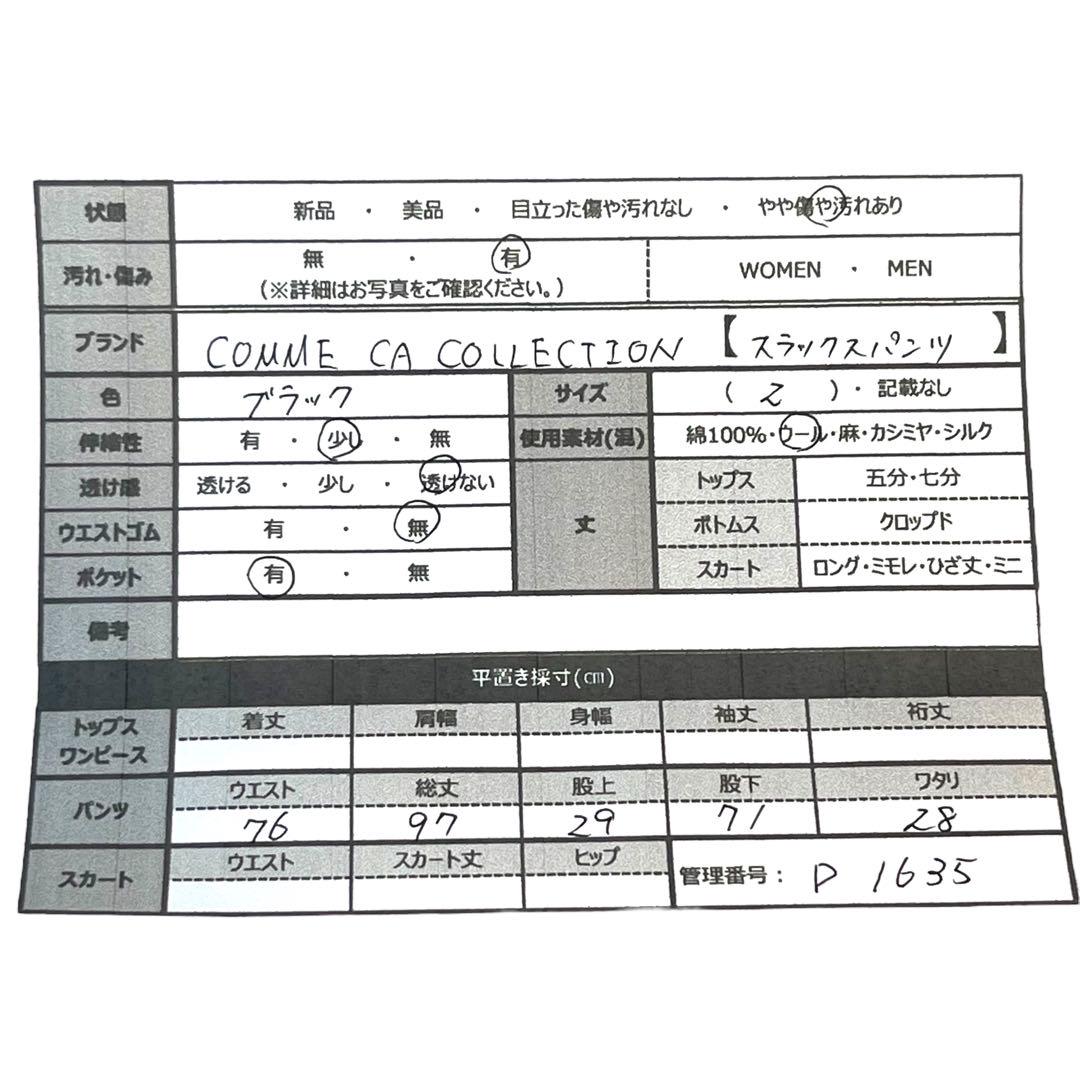 状態 新品 ・ 美品 ・ 目立った傷や汚れなし ・ やや傷や汚れあり
汚れ・傷み 無 ・ 有 WOMEN ・ MEN
(※詳細はお写真をご確認ください。)
ブランド COMME CA COLLECTION 【スラックスパンツ】
色 ブラック サイズ ( 2 )・ 記載なし
伸縮性 有 ・ 少し ・ 無 使用素材(混) 綿100%・ウール・麻・カシミヤ・シルク
透け感 透ける ・ 少し ・ 透けない 丈 トップス 五分・七分
ウエストゴム 有 ・ 無 ボトムス クロップド
ポケット 有 ・ 無 スカート ロング・ミモレ・ひざ丈・ミニ
備考
平置き採寸(㎝)
トップス ワンピース 着丈 肩幅 身幅 袖丈 裄丈
パンツ ウエスト 総丈 股上 股下 ワタリ
76 97 29 71 28
スカート ウエスト スカート丈 ヒップ 管理番号: P 1635